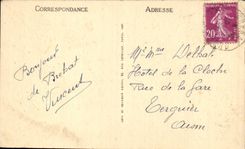 CORRESPONDANCE
ADRESSE
20
Bonjour
de Brehat
Vincent
Mr Mme Delhat
Hotel de la Cloche
Rue de la Gare
Tergnier
Aisne